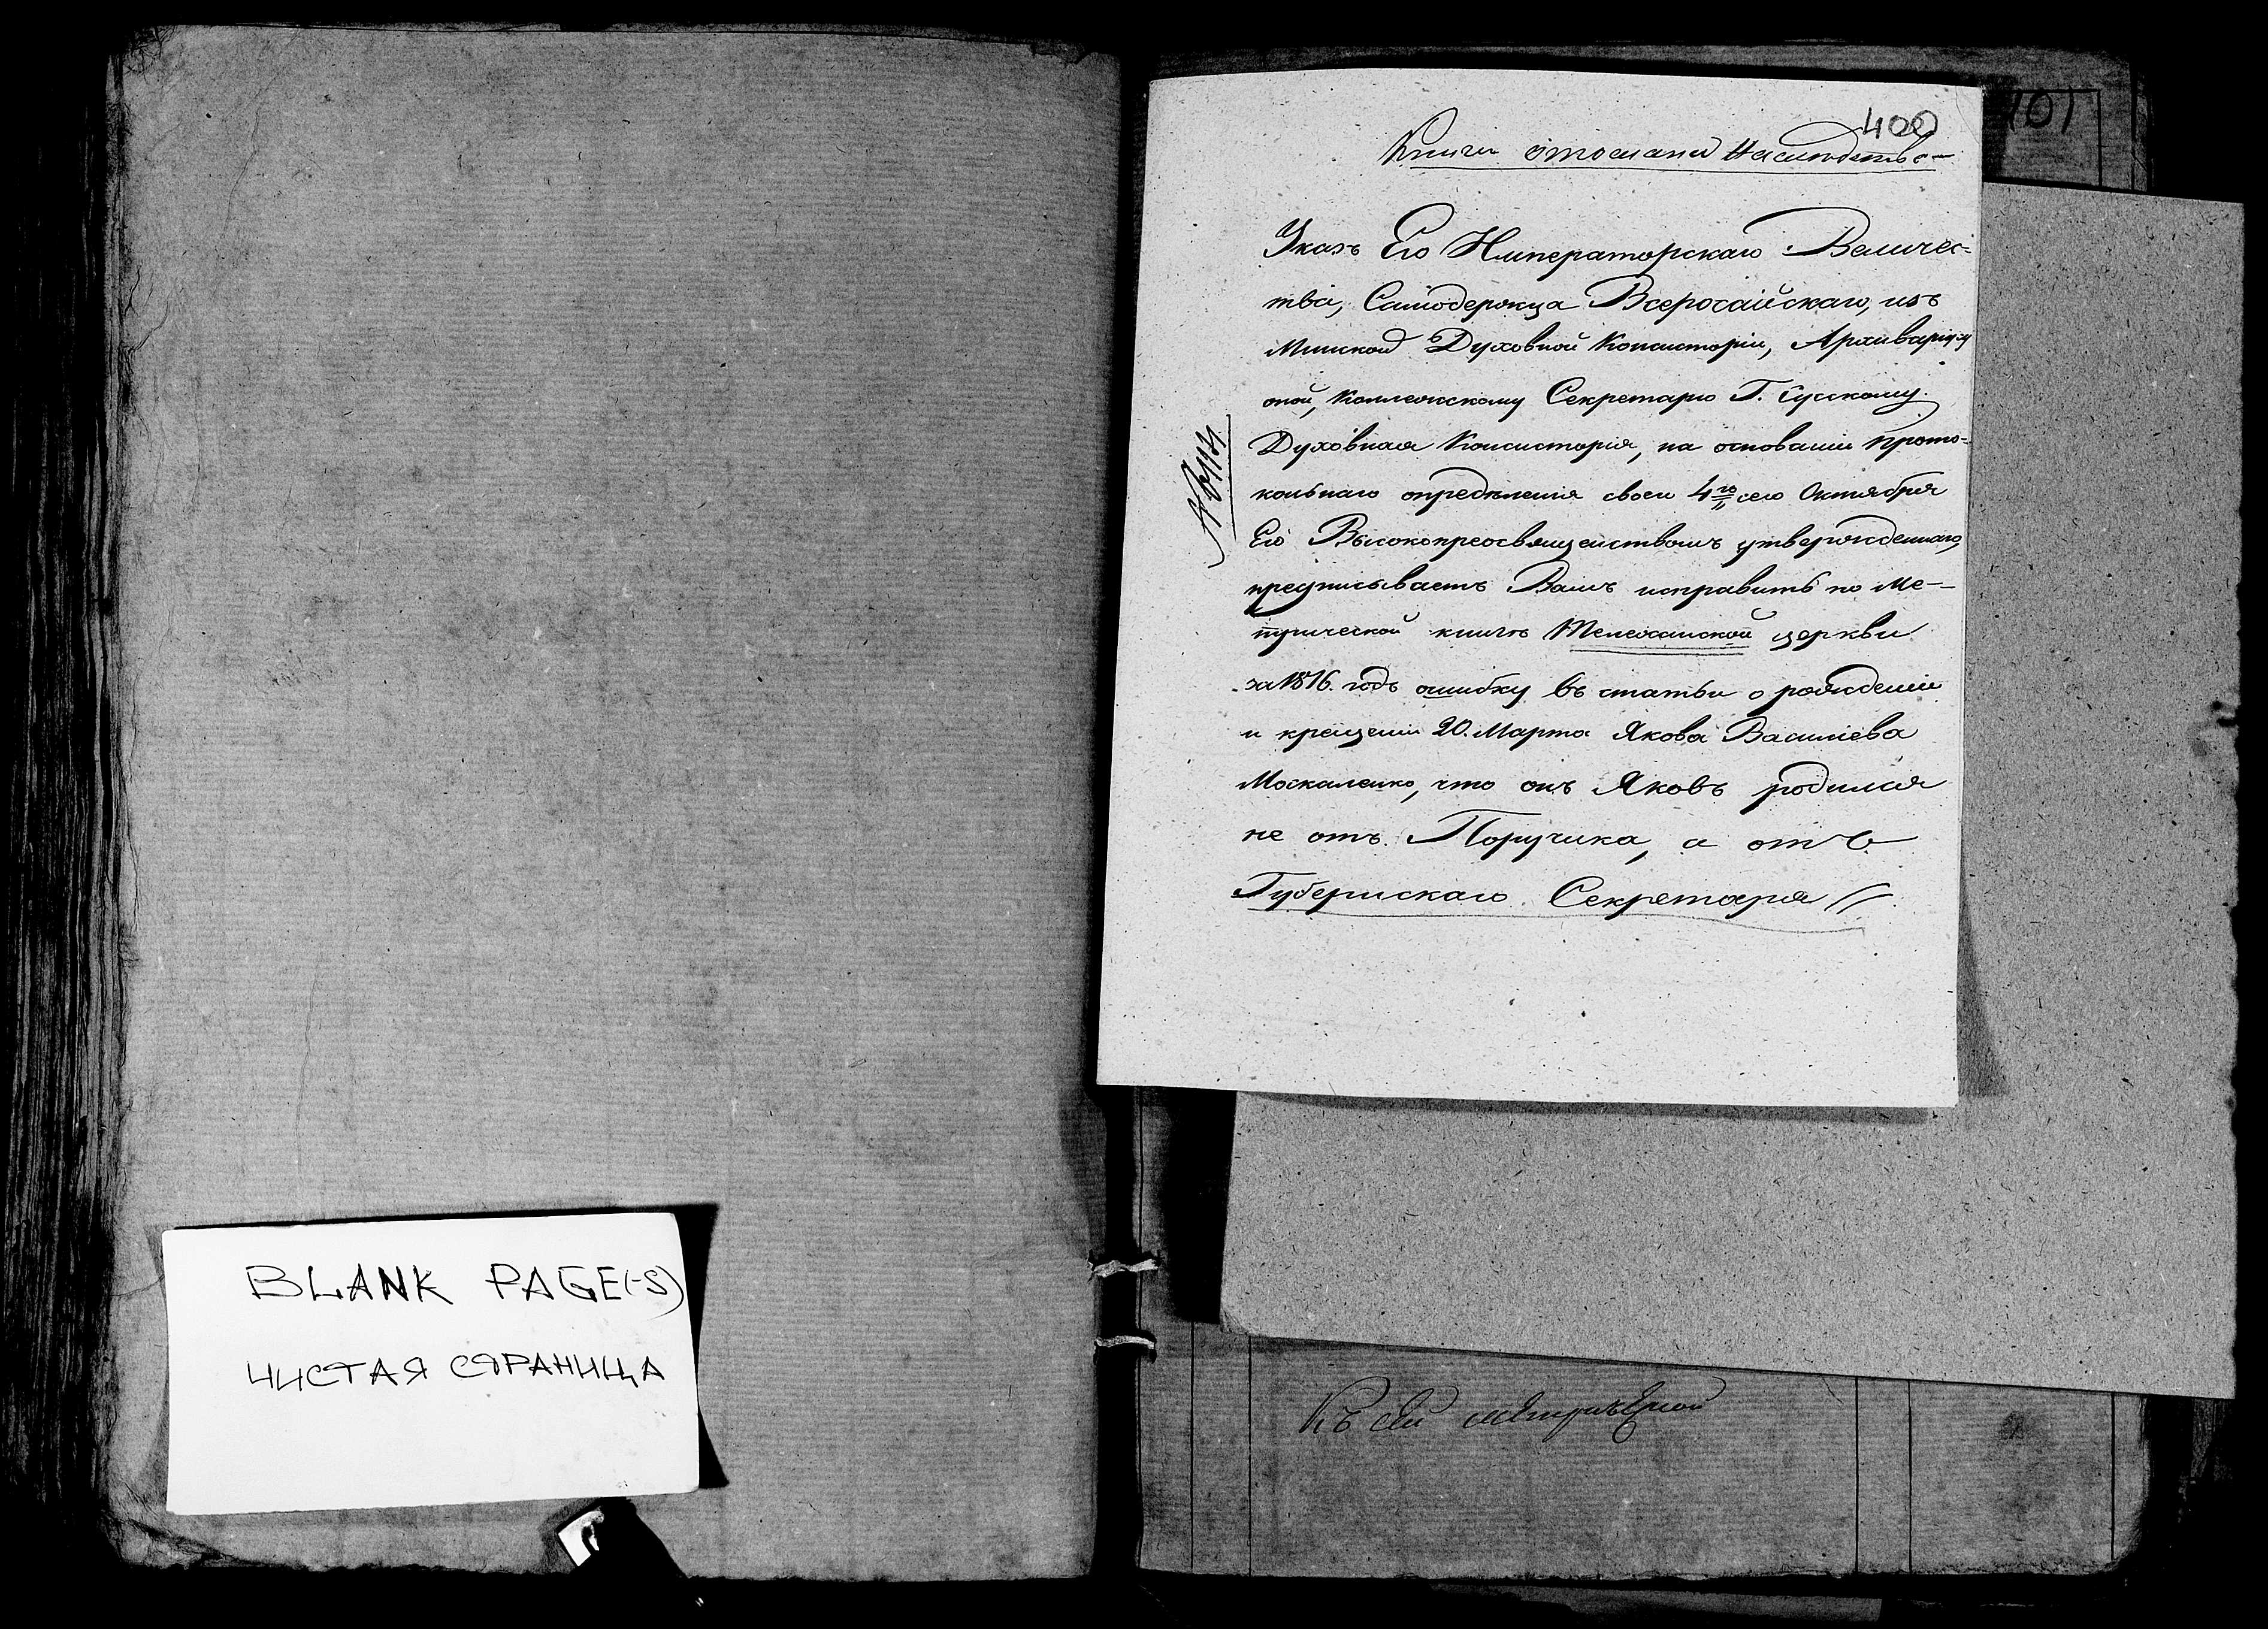 BLANK PAGE(-S)
ЧИСТАЯ СТРАНИЦА
400
401
Книги отослана
Указъ Его Императорскаго Величес-
тва, Самодержца Всеросайскаго, изъ
Минской Духовной Консисторіи, Архиваріусу
оной, Коллежскому Секретарю Г. Гусскому.
Духовная Консисторія, на основаніи прото-
кольнаго опредѣленія своего 4го сего Октября
Его Высокопреосвященствомъ утвержденнаго,
предписываетъ Вамъ исправить по Ме-
трической книгѣ Телеханской церкви
за 1816. годъ ошибку въ статьи о рожденіи
и крещеніи 20. Марта Якова Васильева
Москаленко, что онъ Яковъ родился
не отъ Поручика, а отъ
Губернскаго Секретаря //
Къ сей метрической